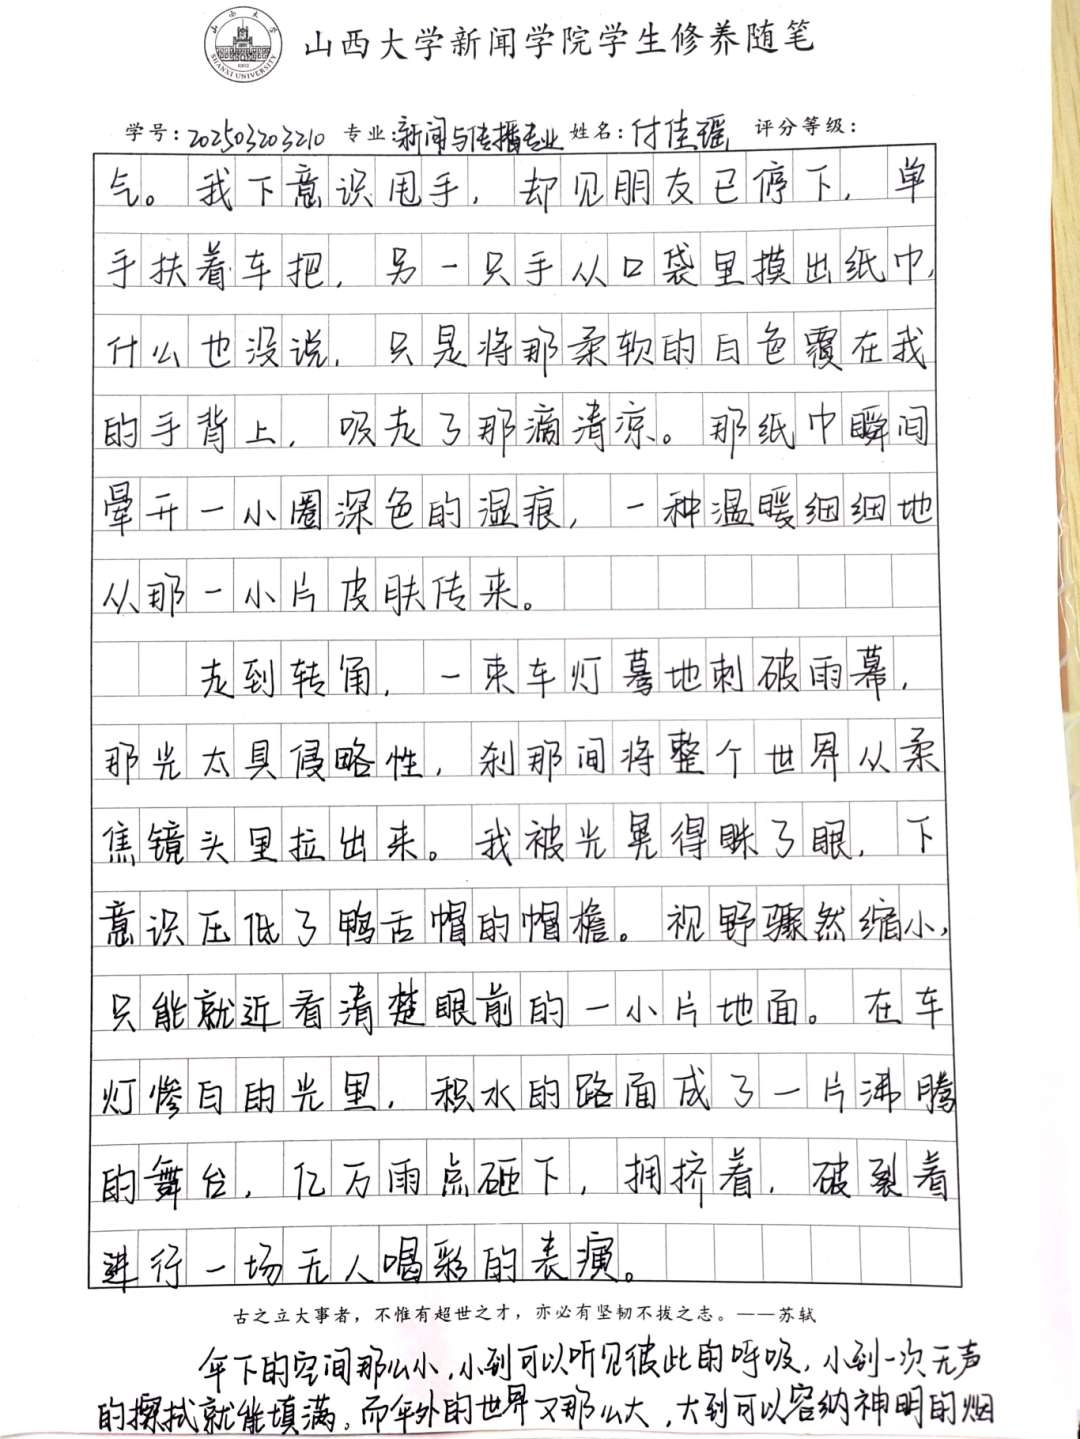 山西大学
SHANXI UNIVERSITY
1902
山西大学新闻学院学生修养随笔
学号：202503203210 专业：新闻与传播专业 姓名：付佳瑶 评分等级：
气。我下意识甩手，却见朋友已停下，单
手扶着车把，另一只手从口袋里摸出纸巾，
什么也没说，只是将那柔软的白色覆在我
的手背上，吸走了那滴清凉。那纸巾瞬间
晕开一小圈深色的湿痕，一种温暖细细地
从那一小片皮肤传来。
走到转角，一束车灯蓦地刺破雨幕，
那光太具侵略性，刹那间将整个世界从柔
焦镜头里拉出来。我被光晃得眯了眼，下
意识压低了鸭舌帽的帽檐。视野骤然缩小，
只能就近看清楚眼前的一小片地面。在车
灯惨白的光里，积水的路面成了一片沸腾
的舞台，亿万雨点砸下，拥挤着，破裂着
进行一场无人喝彩的表演。
古之立大事者，不惟有超世之才，亦必有坚韧不拔之志。——苏轼
伞下的空间那么小，小到可以听见彼此的呼吸，小到一次无声
的擦拭就能填满。而伞外的世界又那么大，大到可以容纳神明的烟